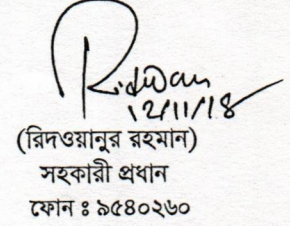 Ridwan
12/11/18
(রিদওয়ানুর রহমান)
সহকারী প্রধান
ফোন ঃ ৯৫৪০২৬০